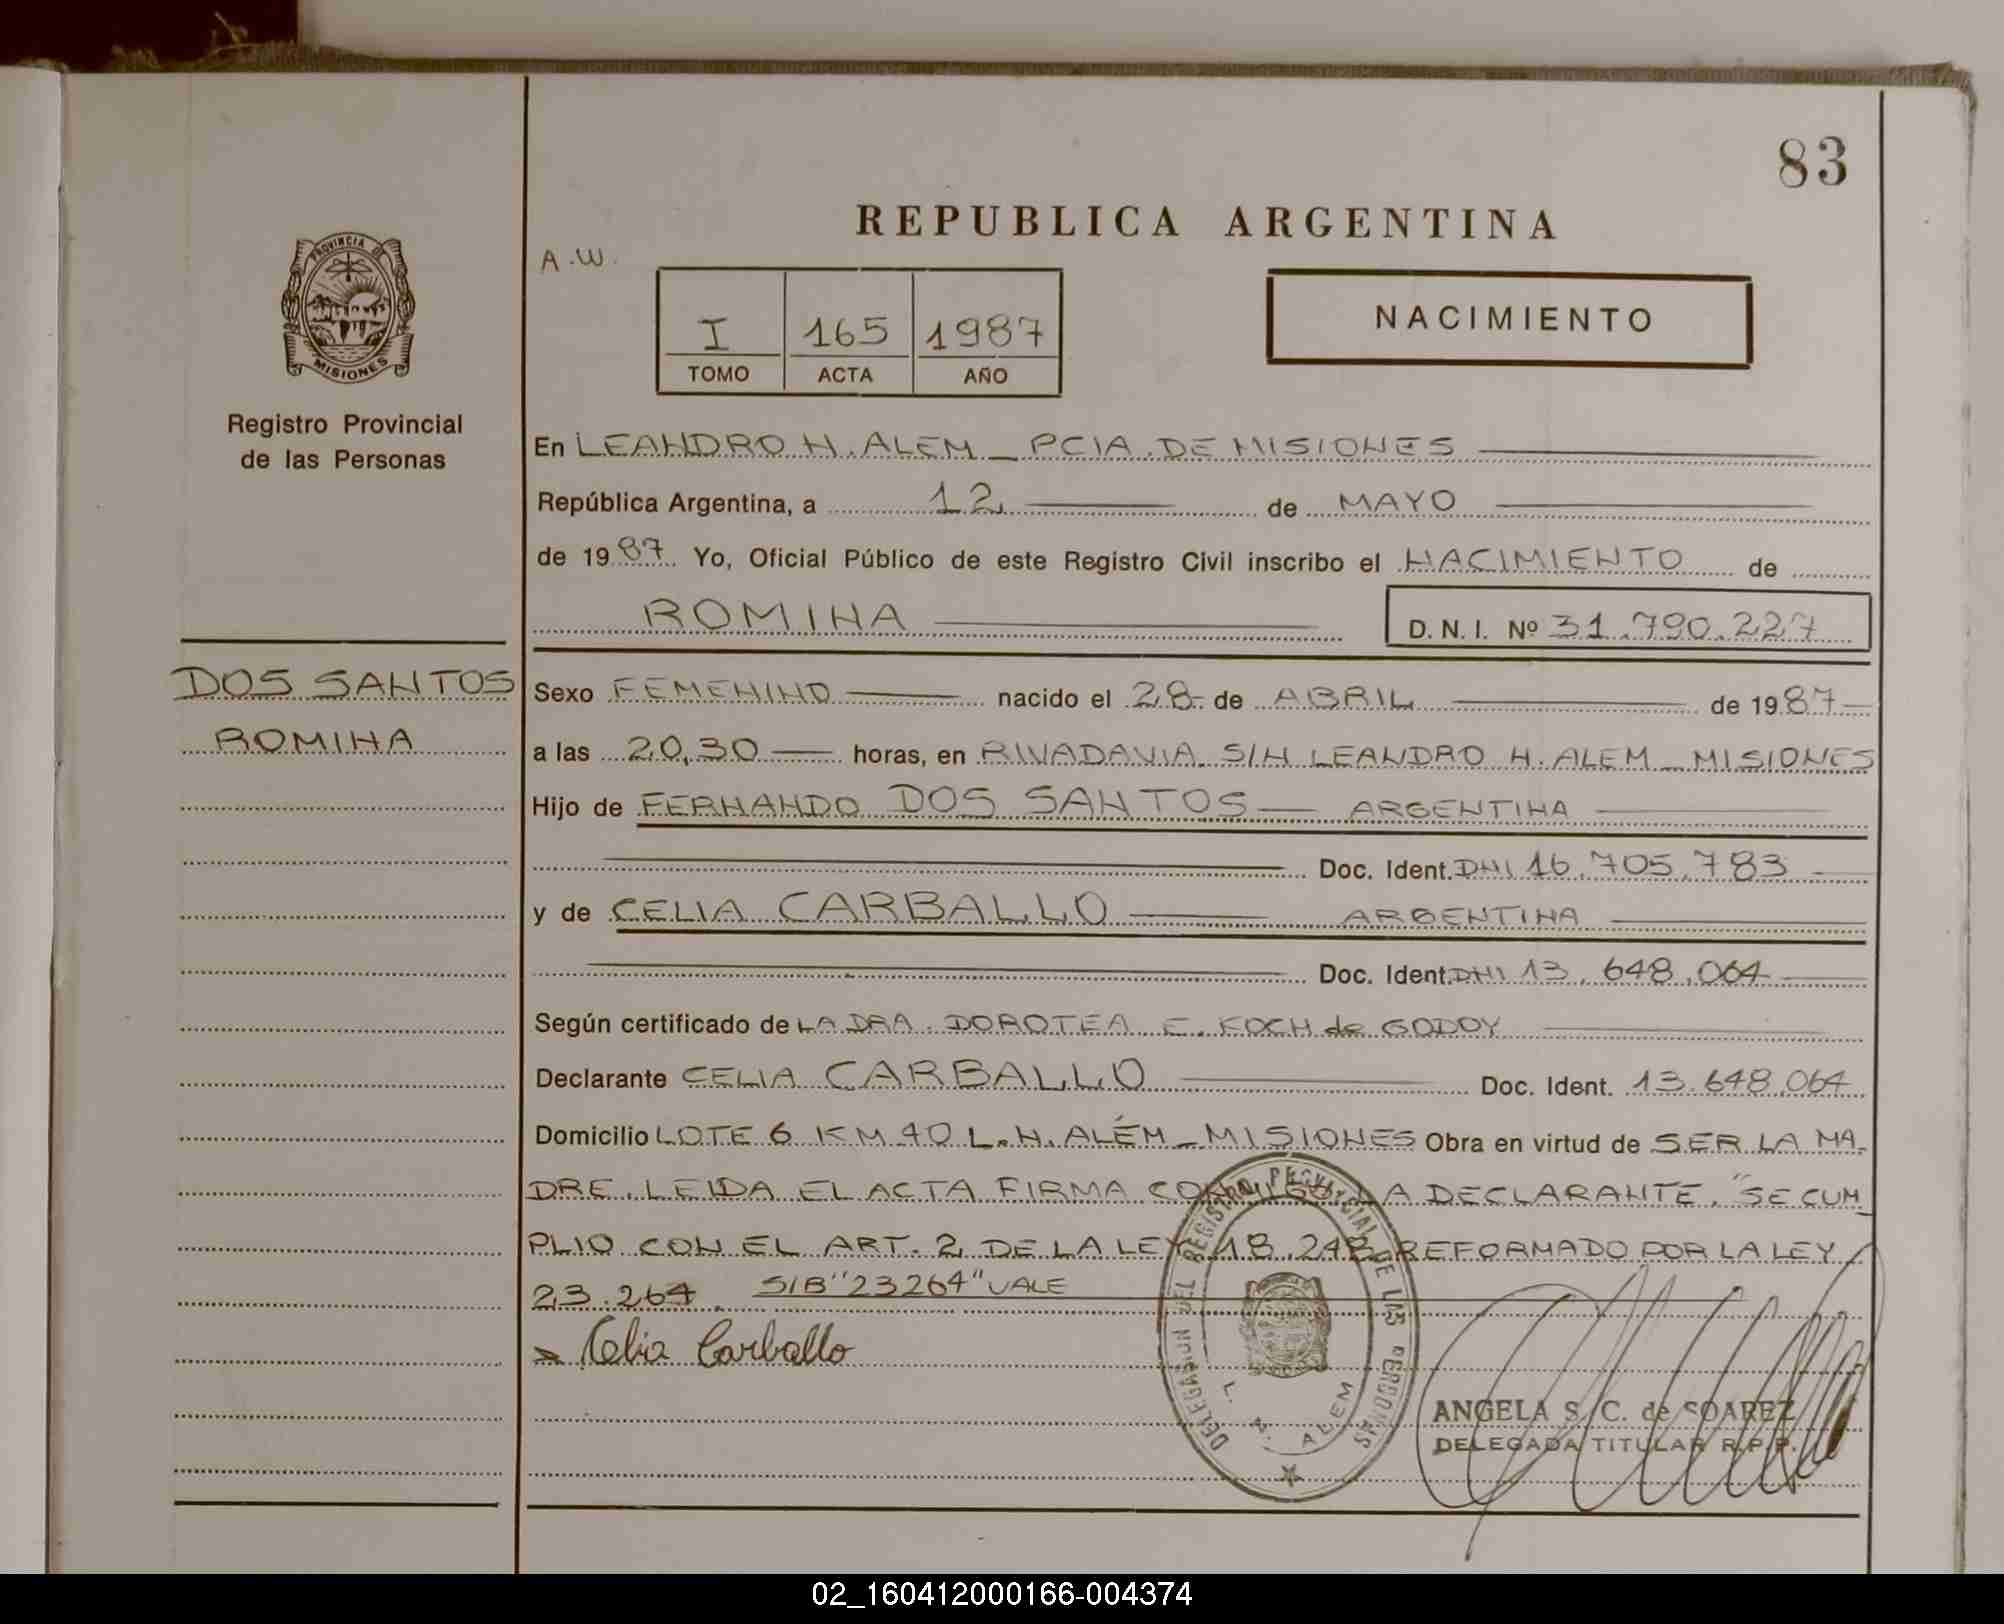 83
REPUBLICA ARGENTINA
A.W.
PROVINCIA DE MISIONES
I 165 1987
TOMO ACTA AÑO
NACIMIENTO
Registro Provincial
de las Personas
En LEANDRO N. ALEM _ PCIA. DE MISIONES
República Argentina, a 12 de MAYO
de 1987. Yo, Oficial Público de este Registro Civil inscribo el NACIMIENTO de
ROMINA
D. N. I. Nº 31.790.227
DOS SANTOS
ROMINA
Sexo FEMENINO nacido el 28 de ABRIL de 1987
a las 20,30 horas, en RIVADAVIA S/N LEANDRO N. ALEM _ MISIONES
Hijo de FERNANDO DOS SANTOS ARGENTINA
Doc. Ident. DNI 16.705.783
y de CELIA CARBALLO ARGENTINA
Doc. Ident. DNI 13.648.064
Según certificado de LA DRA. DOROTEA E. KOCH de GODOY
Declarante CELIA CARBALLO Doc. Ident. 13.648.064
Domicilio LOTE 6 KM 40 L. N. ALÉM _ MISIONES Obra en virtud de SER LA MA-
DRE. LEIDA EL ACTA FIRMA CONMIGO LA DECLARANTE. "SE CUM_
PLIO CON EL ART. 2 DE LA LEY 18.248 REFORMADO POR LA LEY
23.264. S/B "23264" VALE
x Celia Carballo
DELEGACION DEL REGISTRO PROVINCIAL DE LAS PERSONAS
L. N. ALEM
ANGELA S. C. de SOAREZ
DELEGADA TITULAR R.P.P.
02_160412000166-004374